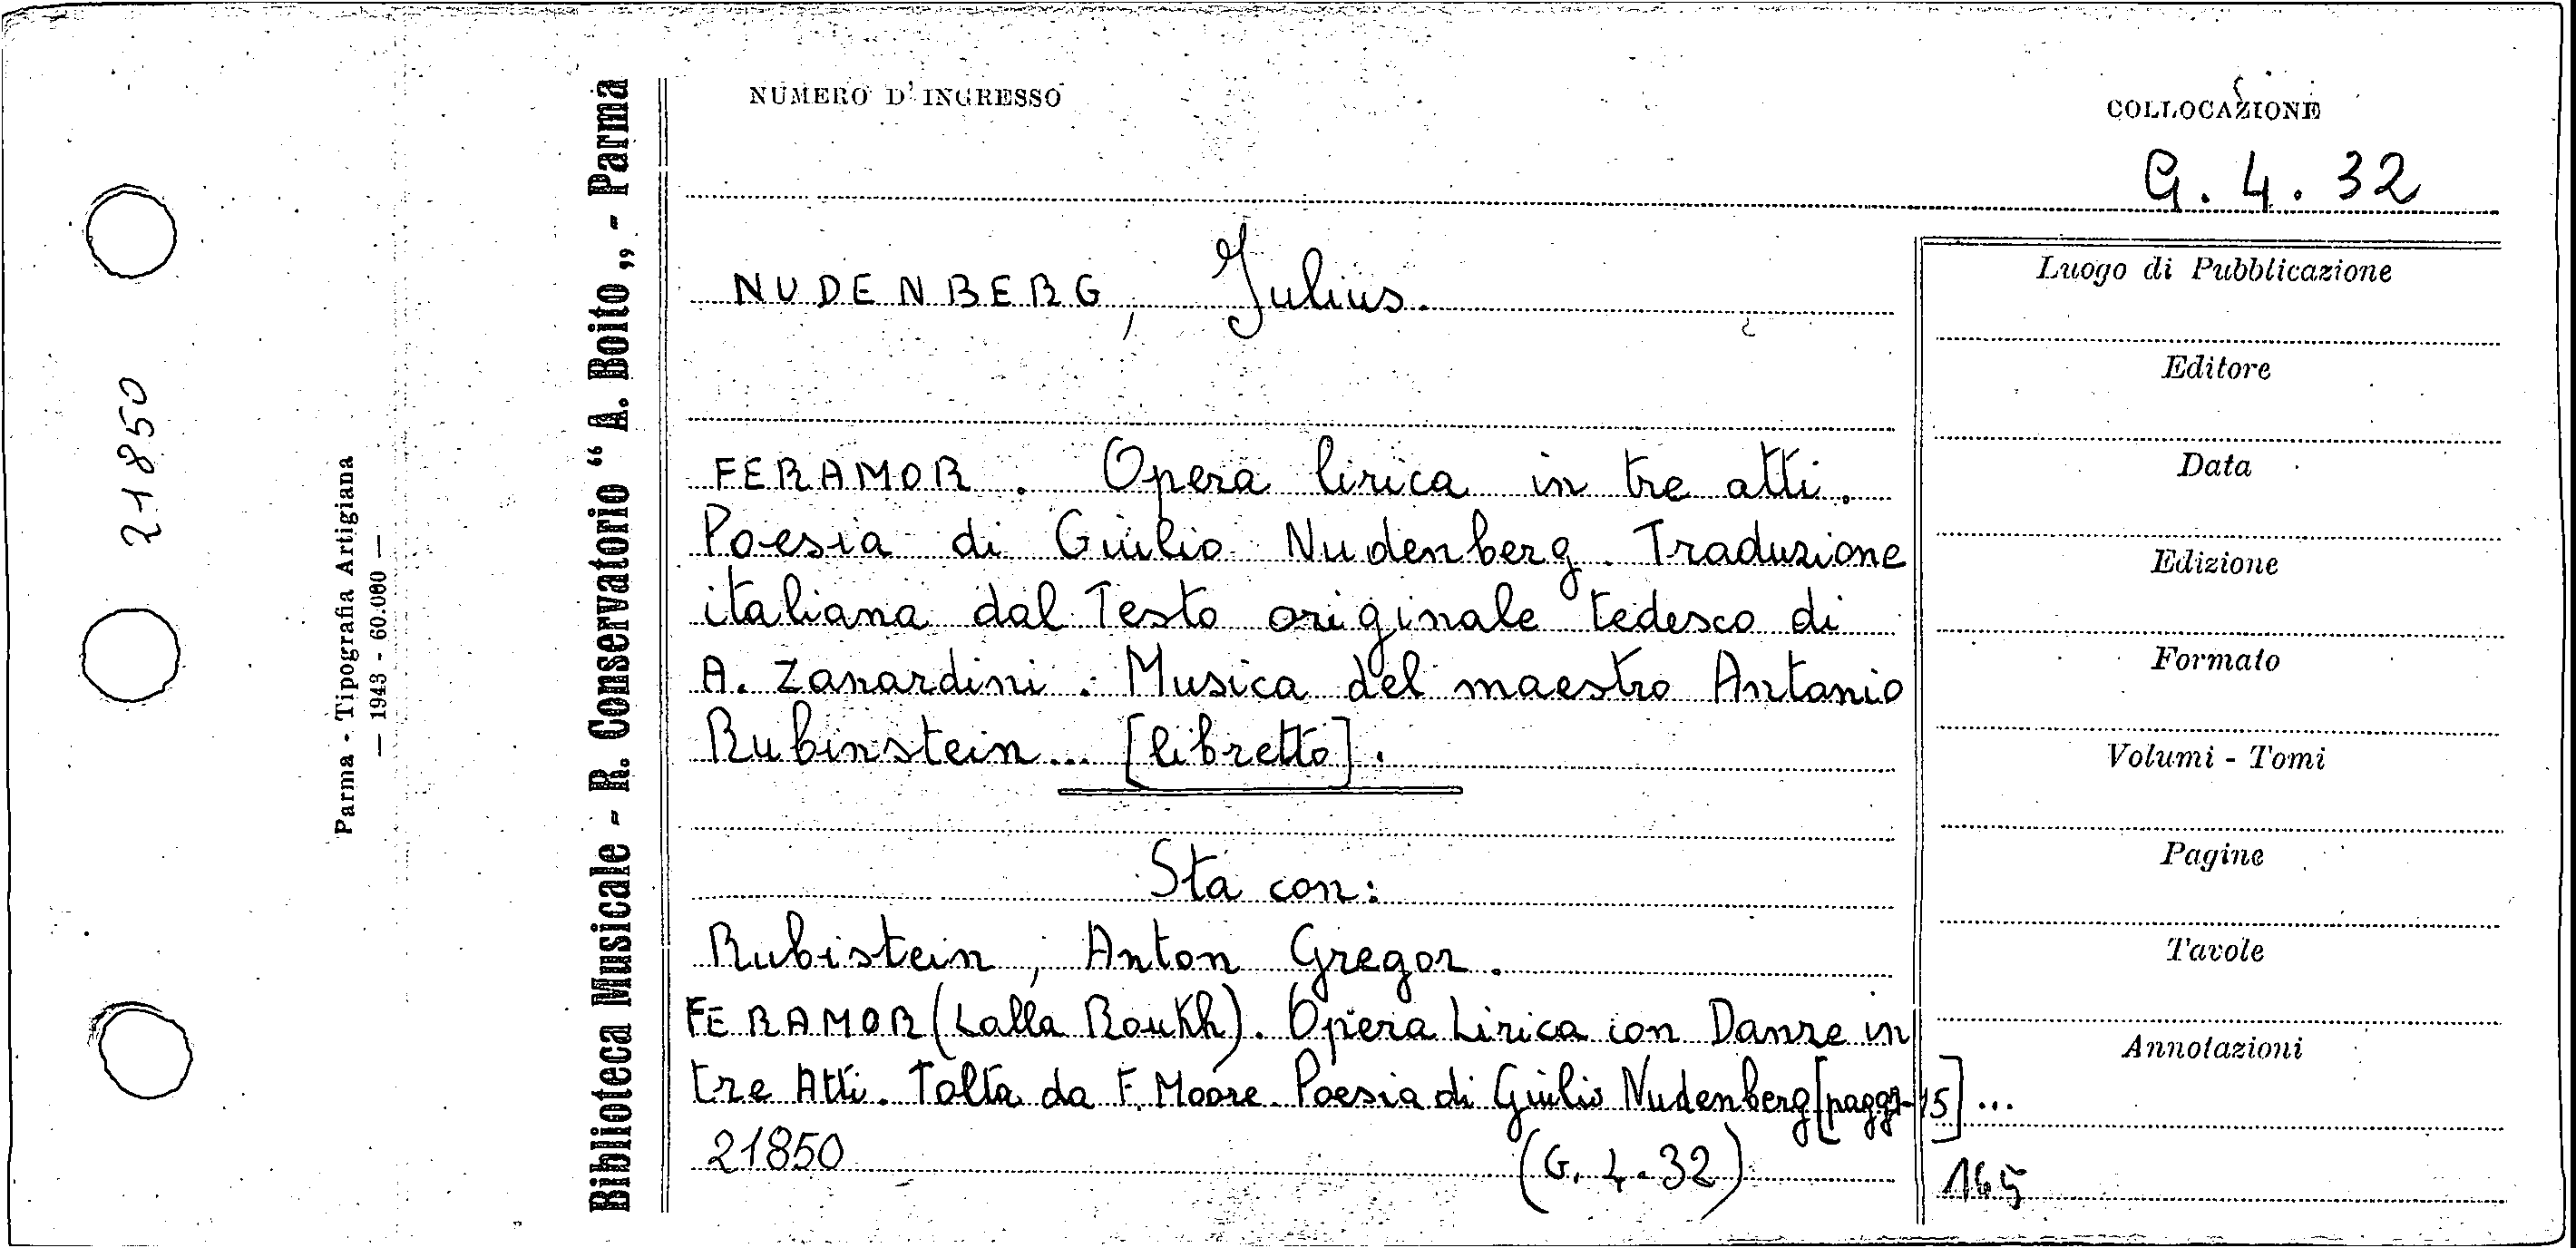 NUMERO D'INGRESSO
COLLOCAZIONE
G. 4. 32
NUDENBERG, Julius.
FERAMOR. Opera lirica in tre atti.
Poesia di Giulio Nudenberg. Traduzione
italiana dal Testo originale tedesco di
A. Zanardini. Musica del maestro Antonio
Rubinstein... [libretto].
Sta con:
Rubistein, Anton Gregor.
FERAMOR (Lalla Roukh). Opera Lirica con Danze in
tre Atti. Tolta da F. Moore. Poesia di Giulio Nudenberg [pagg1-15]...
21850 (G. 4. 32)
Luogo di Pubblicazione
Editore
Data
Edizione
Formato
Volumi - Tomi
Pagine
Tavole
Annotazioni
165
Biblioteca Musicale - R. Conservatorio “A. Boito„ - Parma
Parma - Tipografia Artigiana
— 1943 - 60.000 —
21850